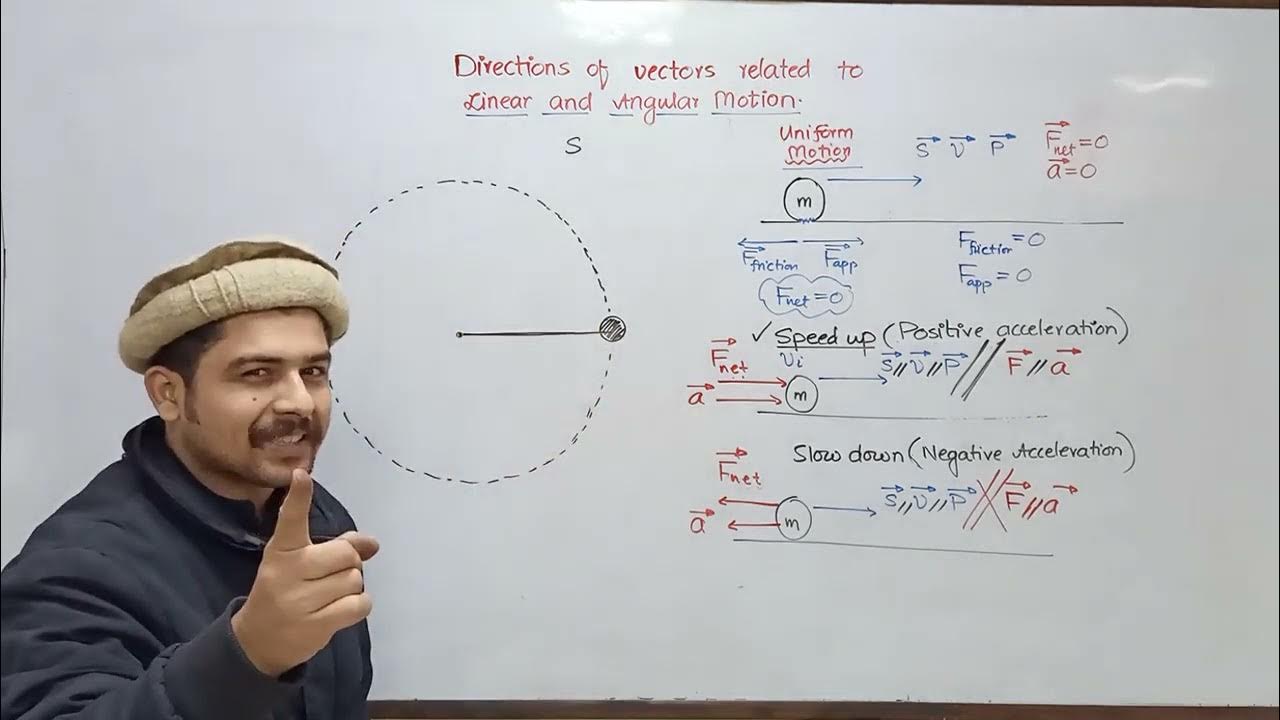 Directions of vectors related to
Linear and Angular Motion.
S
Uniform
Motion
S⃗ V⃗ P⃗
F⃗net = 0
a⃗ = 0
m
F⃗friction F⃗app
Fnet = 0
Ffriction = 0
Fapp = 0
✓ Speed up (Positive acceleration)
F⃗net
vi
S⃗ // V⃗ // P⃗ // F⃗ // a⃗
a⃗
m
Slow down (Negative Acceleration)
F⃗net
S⃗ // V⃗ // P⃗ F⃗ // a⃗
a⃗
m